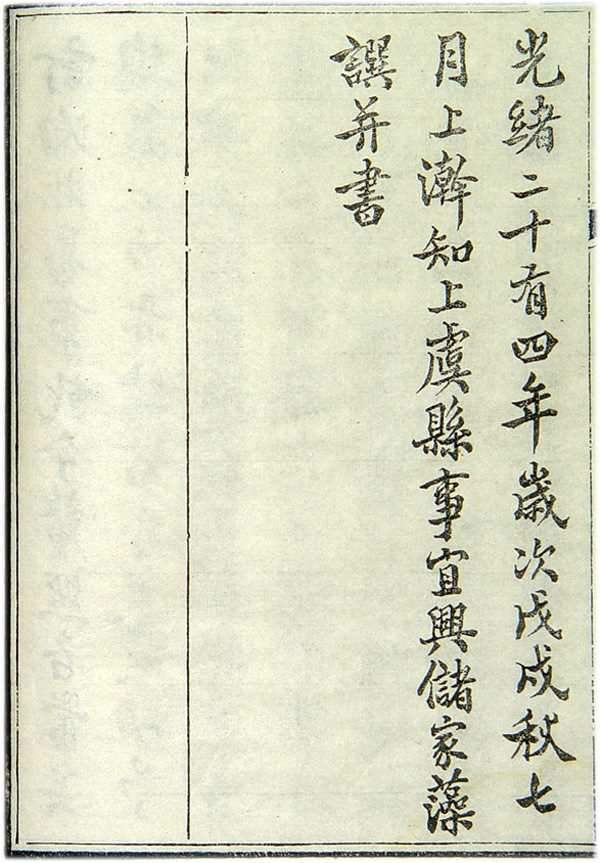 光緒二十有四年歲次戊戌秋七
月上澣知上虞縣事宜興儲家藻
譔并書